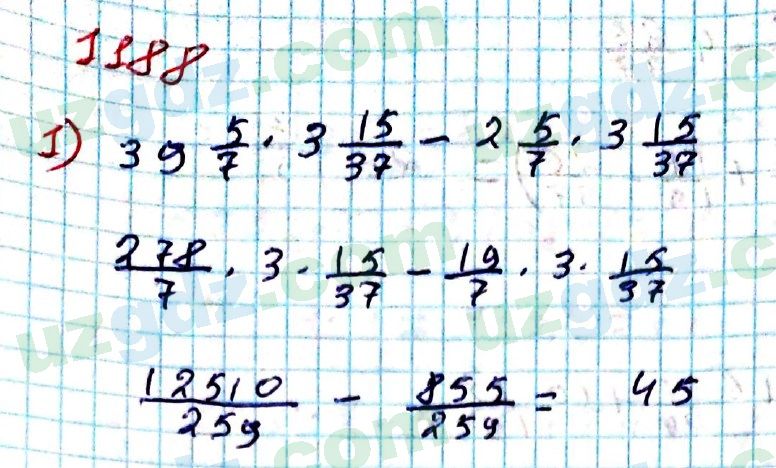 1188
1) 39 5/7 · 3 15/37 - 2 5/7 · 3 15/37
278/7 · 3 · 15/37 - 19/7 · 3 · 15/37
12510/259 - 855/259 = 45
uzgdz.com